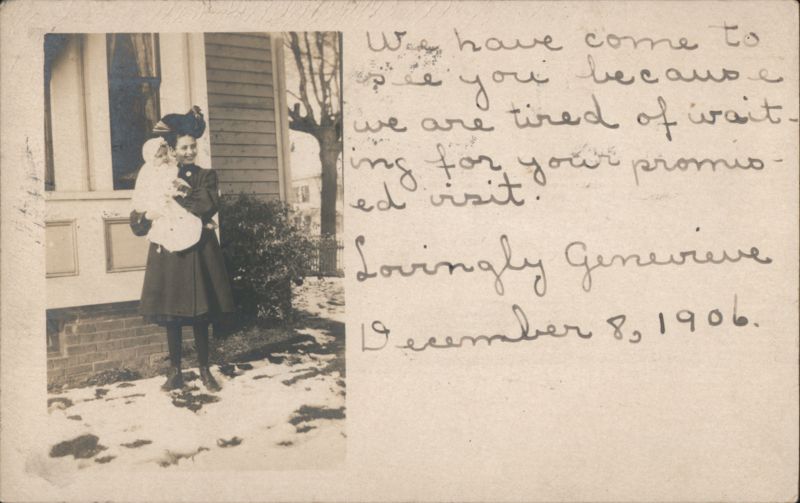 We have come to
see you because
we are tired of wait-
ing for your promis-
ed visit.
Lovingly Genevieve
December 8, 1906.